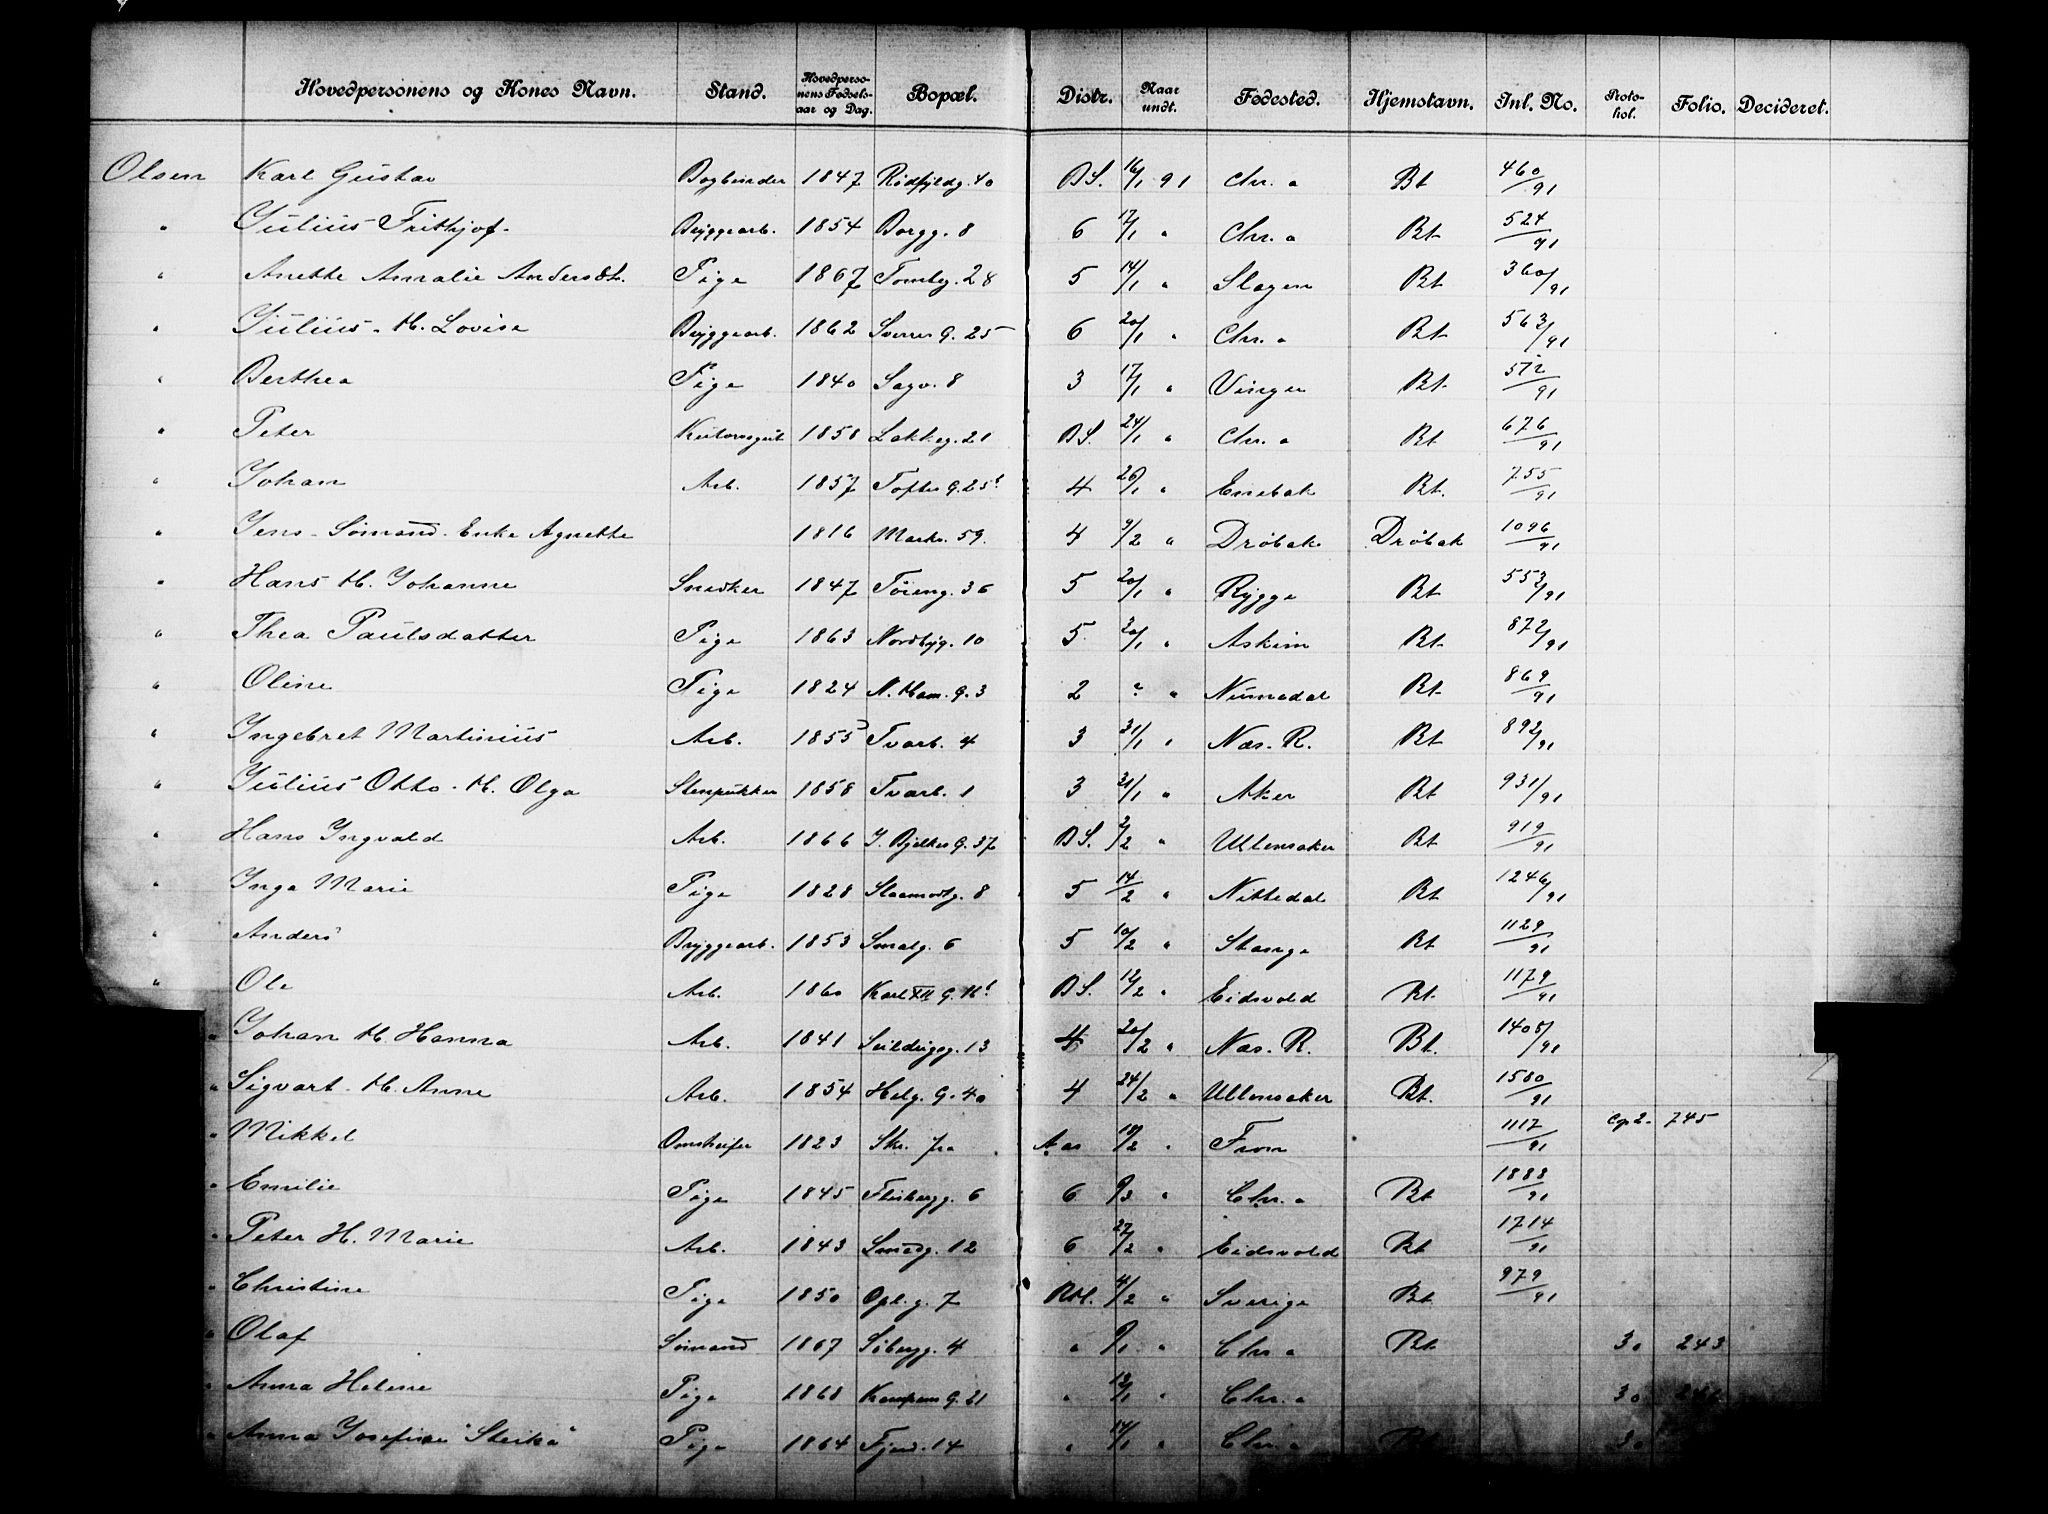 Hovedpersonens og Kones Navn. Stand. Hovedpersonens Fødselsaar og Dag. Bopæl. Distr. Naar undt. Fødested. Hjemstavn. Inl. No. Protokol. Folio. Decideret.
Olsen Karl Gustav Bogbinder 1847 Rødfyldg. 40 BS. 16/1 91 Chr. a Bt 460/91
" Julius Frithjof. Bryggearb. 1854 Borgg. 8 6 17/1 " Chr. a Bt 524/91
" Anette Amalie Andersdt. Pige 1867 Tomteg. 28 5 14/1 " Slagen Bt 360/91
" Julius. H. Lovise Bryggearb. 1862 Sverres G. 25 6 20/1 " Chr. a Bt 563/91
" Berthea Pige 1840 Sagv. 8 3 17/1 " Vinger Bt 572/91
" Peter 1858 Lakkeg. 21 BS. 24/1 " Chr. a Bt 676/91
" Johan Arb. 1857 Toftes G. 25 b 4 26/1 " Enebak Bt. 755/91
" Jens. Sømand. Enke Agnette 1816 Markv. 59. 4 9/2 " Drøbak Drøbak 1096/91
" Hans H. Johanne Snedker 1847 Tøieng. 36 5 20/1 " Rygge Bt 553/91
" Thea Paulsdatter Pige 1863 Nordbyg. 10 5 20/1 " Askim Bt 872/91
" Oline Pige 1824 N. Ham. G. 3 2 " " Numedal Bt 869/91
" Ingebret Martinius Arb. 1855 Tvarb. 4 3 31/1 " Næs. R. Bt 892/91
" Julius Otto. H. Olga Stenpukker 1858 Tvarb. 1 3 31/1 " Aker Bt 931/91
" Hans Ingvald Arb. 1866 J. Bjelkes G. 37 BS. 2/2 " Ullensaker Bt 919/91
" Inga Marie Pige 1828 8 5 14/2 " Nittedal Bt 1246/91
" Anders Bryggearb. 1853 Smalg. 6 5 10/2 " Stange Bt 1129/91
" Ole Arb. 1860 Karl XII G. 16 b BS. 12/2 " Eidsvold Bt. 1179/91
" Johan H. Hanna Arb. 1841 Seildugsg. 13 4 20/2 " Næs. R. Bt. 1405/91
" Sigvart. H. Anne Arb. 1854 Helg. G. 40 4 24/2 " Ullensaker Bt. 1580/91
" Mikkel Omstreifer 1823 Skr. fra Aas 10/2 " From 1117/91 Cop 2. 745
" Emilie Pige 1845 Flisbergg. 6 6 9/3 " Chr. a Bt 1888/91
" Peter H. Marie Arb. 1843 Smedg. 12 6 27/2 " Eidsvold Bt 1714/91
" Christine Pige 1850 Opl. g. 7 Rbl. 4/2 " Sverige Bt 979/91
" Olaf Sømand 1867 Søbergg. 4 " 9/1 " Chr. a Bt 30 243
" Anna Helene Pige 1868 Kampens G. 21 " 13/1 " Chr. a 30
" Anna Josefine "Steika" Pige 1864 Fjerd. 14 " 14/1 " Chr. a Bt 30